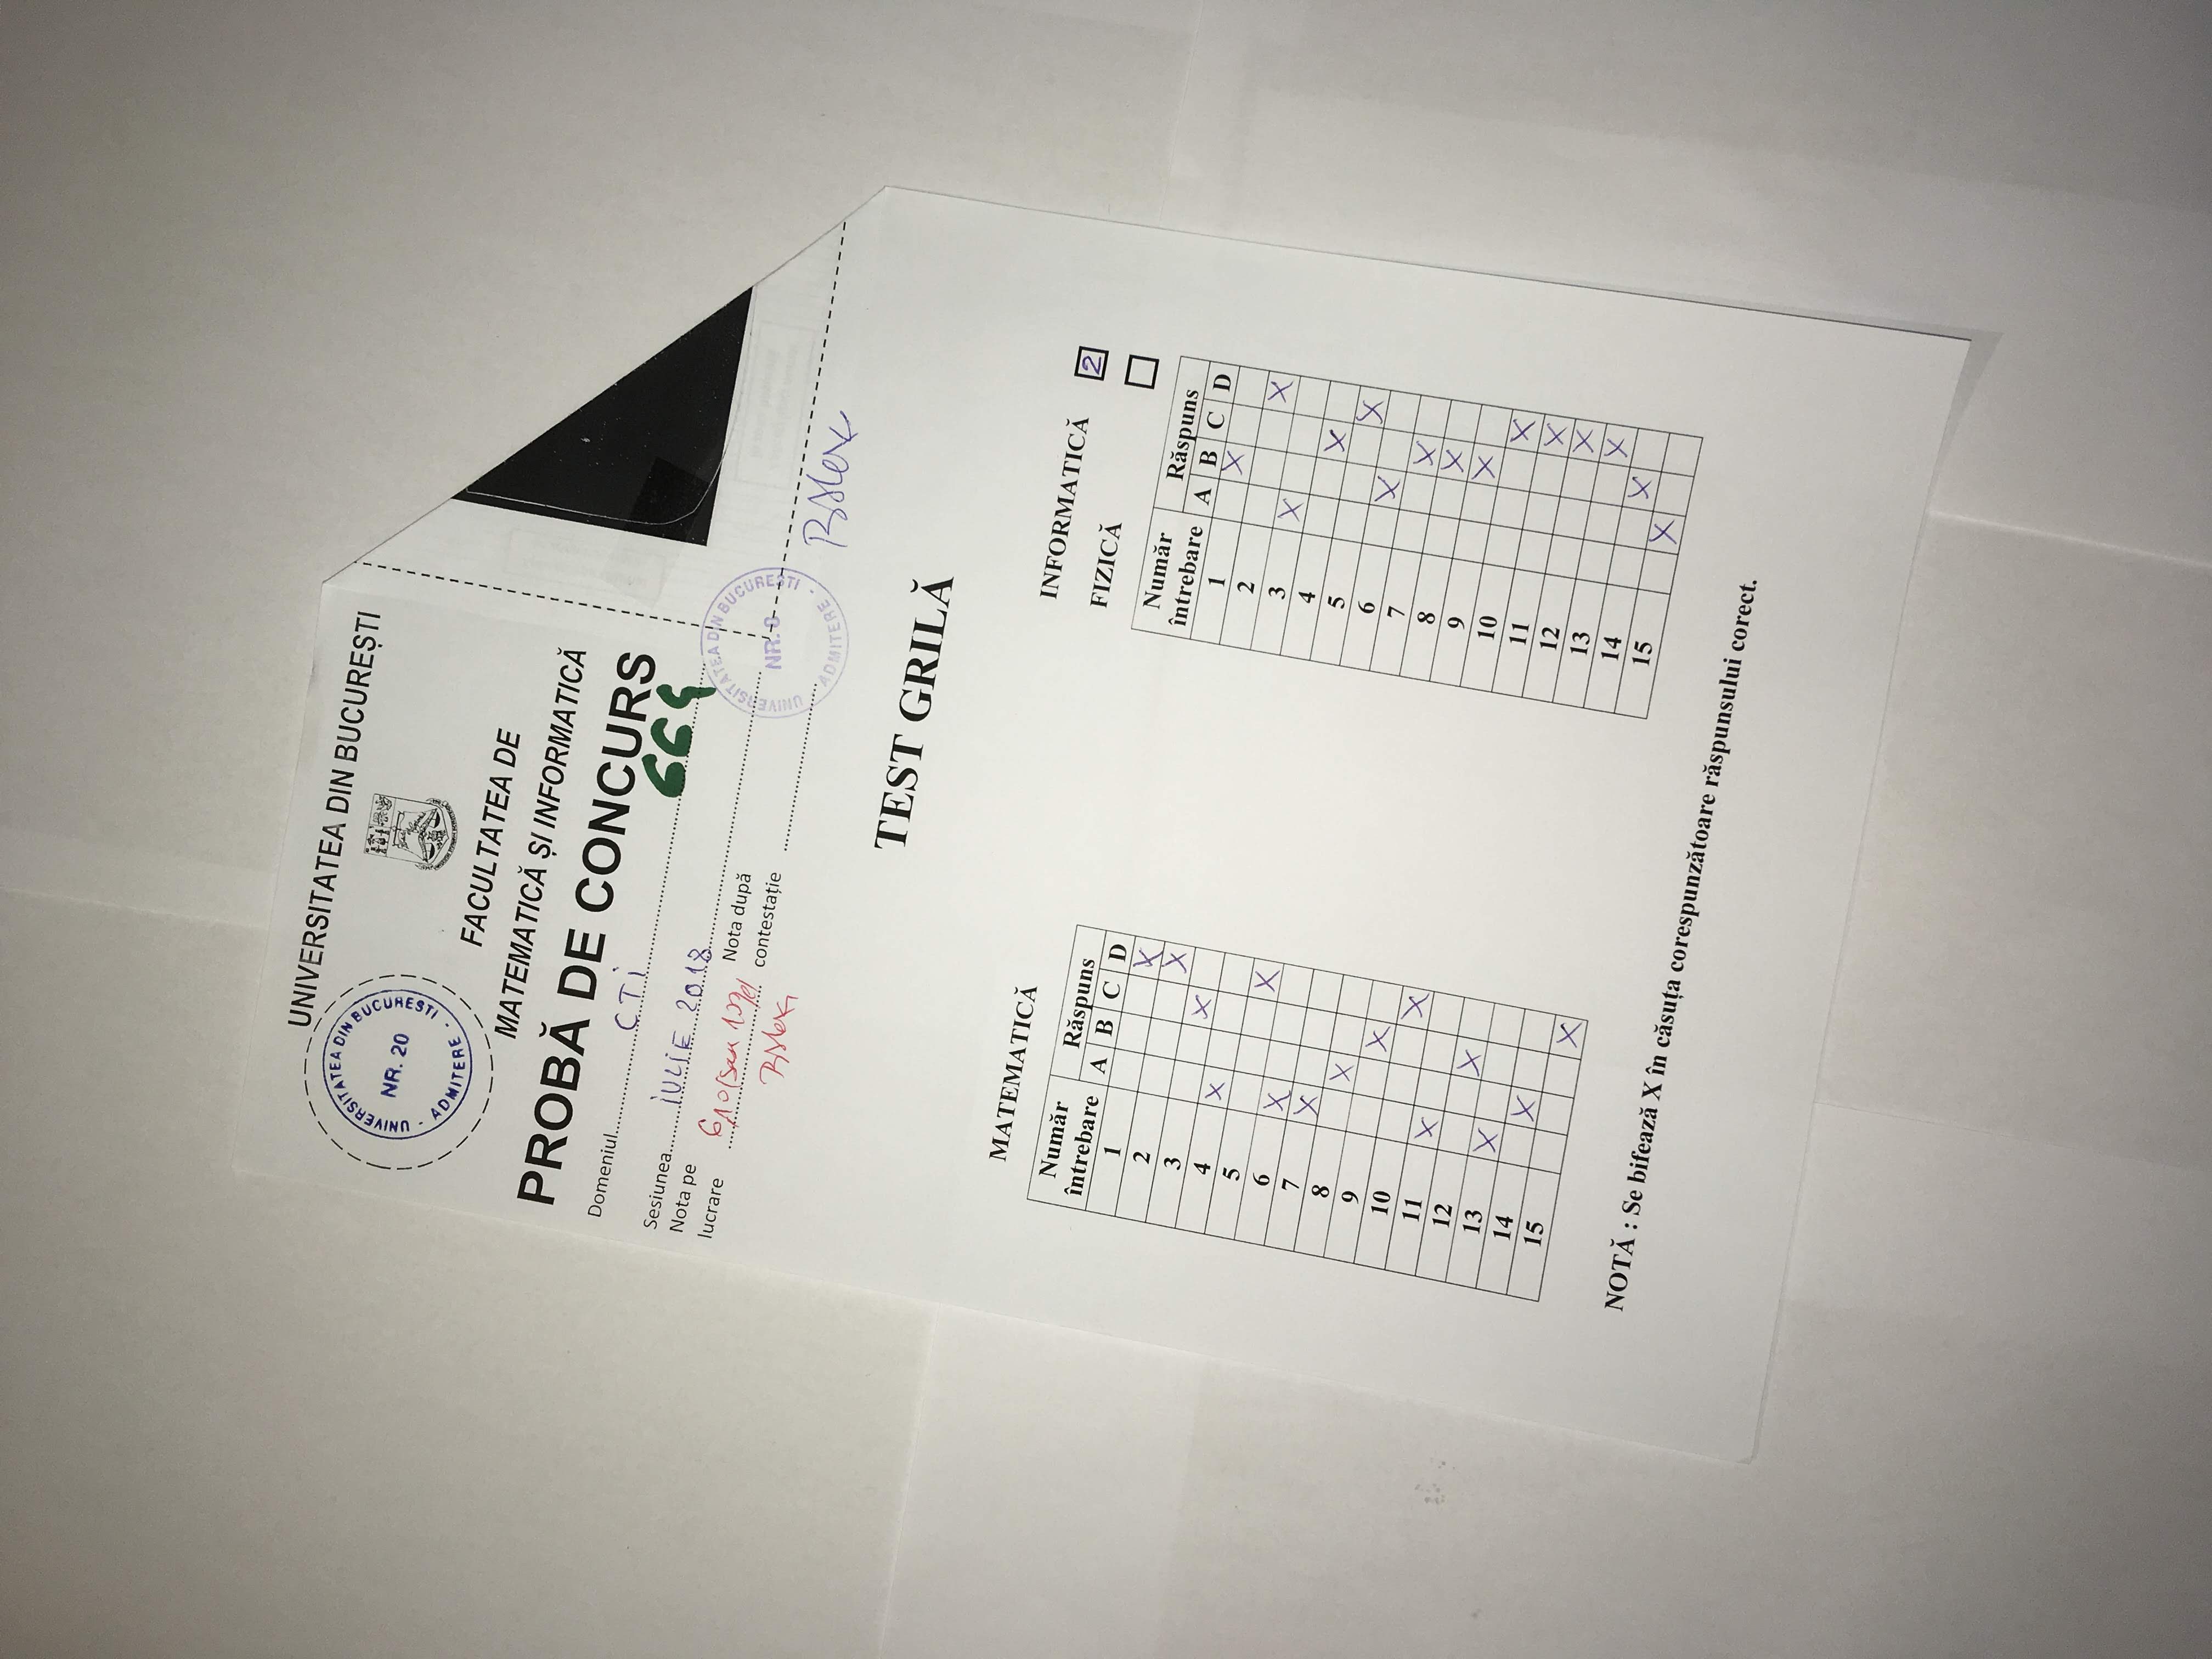 UNIVERSITATEA DIN BUCUREȘTI
UNIVERSITATEA DIN BUCUREȘTI
NR. 20
- ADMITERE -
FACULTATEA DE
MATEMATICĂ ȘI INFORMATICĂ
PROBĂ DE CONCURS
Domeniul CTi
664
Sesiunea iULIE 2018
Nota pe lucrare 6,10
Nota după contestație
UNIVERSITATEA DIN BUCUREȘTI
NR. 8
- ADMITERE -
TEST GRILĂ
MATEMATICĂ
Număr întrebare Răspuns
A B C D
1 X
2 X
3 X
4 X
5 X
6 X
7 X
8 X
9 X
10 X
11 X
12 X
13 X
14 X
15 X
INFORMATICĂ 2
FIZICĂ
Număr întrebare Răspuns
A B C D
1 X
2 X
3 X
4 X
5 X
6 X
7 X
8 X
9 X
10 X
11 X
12 X
13 X
14 X
15 X
NOTĂ : Se bifează X în căsuța corespunzătoare răspunsului corect.